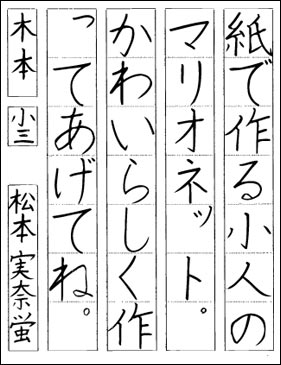 紙で作る小人の
マリオネット。
かわいらしく作
ってあげてね。
木本 小三 松本実奈蛍